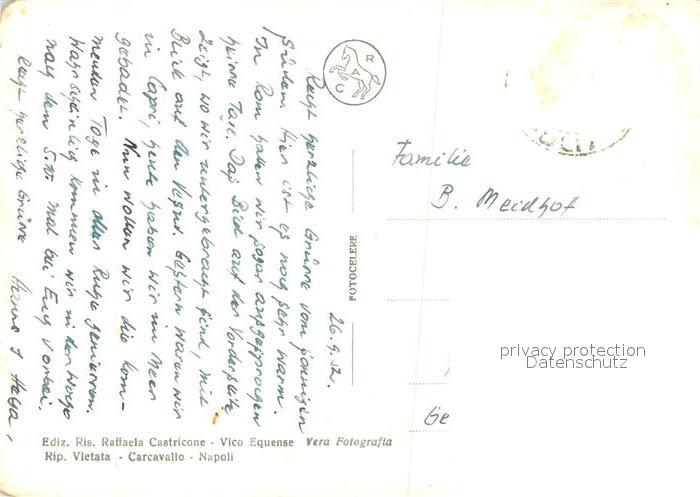 26.9.52.
Recht herzliche Grüsse vom sonnigen
Süden. Hier ist es noch sehr warm.
In Rom haben wir sogar ausgesprochen
heisse Tage. Das Bild auf der Vorderseite
zeigt, wo wir untergebracht sind, mit
Blick auf den Vesuv. Gestern waren wir
in Capri, heute haben wir im Meer
gebadet. Nun wollen wir die kom-
menden Tage in aller Ruhe geniessen.
Wahrscheinlich kommen wir in der Woche
nach dem 5. mal bei Euch vorbei.
Recht herzliche Grüsse Hanns & Helga.
R
A
C
FOTOCELERE
Familie
B. Meidhof
privacy protection
Datenschutz
Ge
Ediz. Ris. Raffaela Castricone - Vico Equense Vera Fotografia
Rip. Vietata - Carcavallo - Napoli